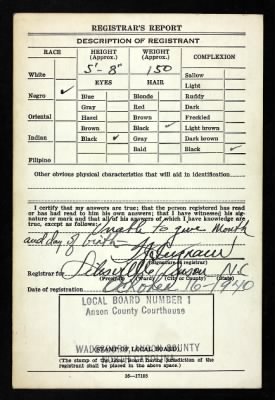 REGISTRAR'S REPORT
DESCRIPTION OF REGISTRANT
RACE HEIGHT (Approx.) WEIGHT (Approx.) COMPLEXION
5'-8" 150
White Sallow
EYES HAIR Light
Negro ✓ Blue Blonde Ruddy
Gray Red Dark
Oriental Hazel Brown Freckled
Brown Black ✓ Light brown
Indian Black ✓ Gray Dark brown
Bald Black ✓
Filipino
Other obvious physical characteristics that will aid in identification
I certify that my answers are true; that the person registered has read
or has had read to him his own answers; that I have witnessed his sig-
nature or mark and that all of his answers of which I have knowledge are
true, except as follows: Unable to give Month
and day of birth
(Signature of registrar)
Registrar for Anson N.C.
(Precinct) (Ward) (City or County) (State)
Date of registration October 16-1940
LOCAL BOARD NUMBER 1
Anson County Courthouse
(STAMP OF LOCAL BOARD)
(The stamp of the Local Board having jurisdiction of the registrant
shall be placed in the above space.)
16—17105